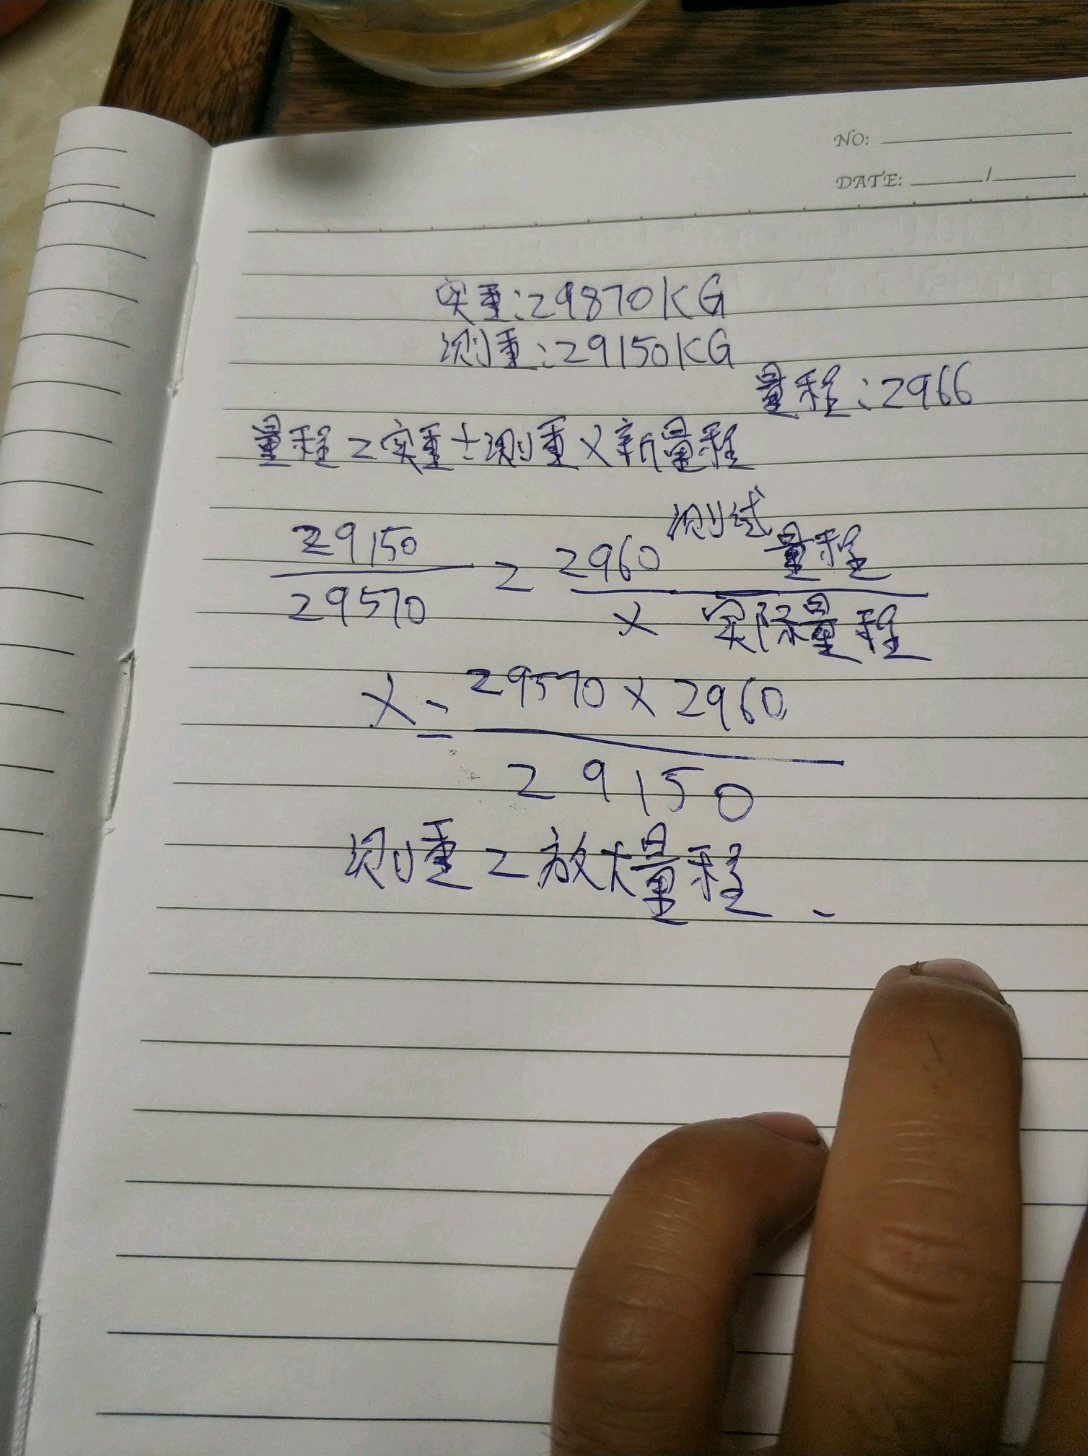 NO:
DATE: /
实重:29870KG
测重:29150KG
量程:2966
量程=实重÷测重×新量程
29150 = 2960 测试量程
29570 x 实际量程
x = 29570×2960
29150
测重=放大量程、